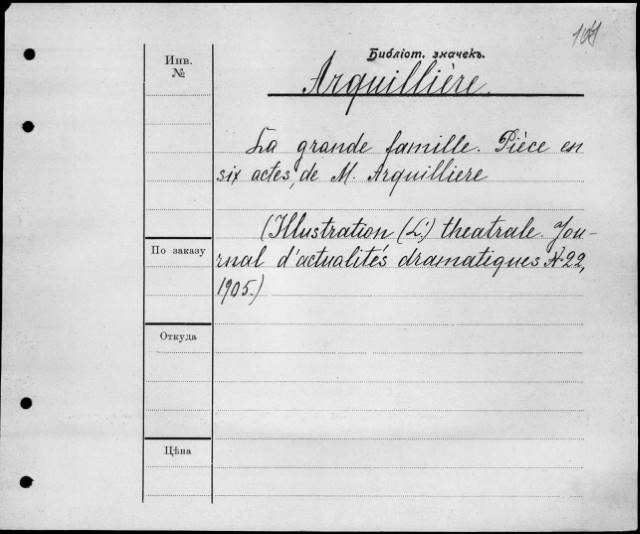 Библіот. значекъ.
Инв.
№
Arquillière.
La grande famille. Pièce en
six actes, de M. Arquilliere
(Illustration (L') theatrale. Jou-
rnal d'actualités dramatiques N. 22,
1905.)
По заказу
Откуда
Цѣна